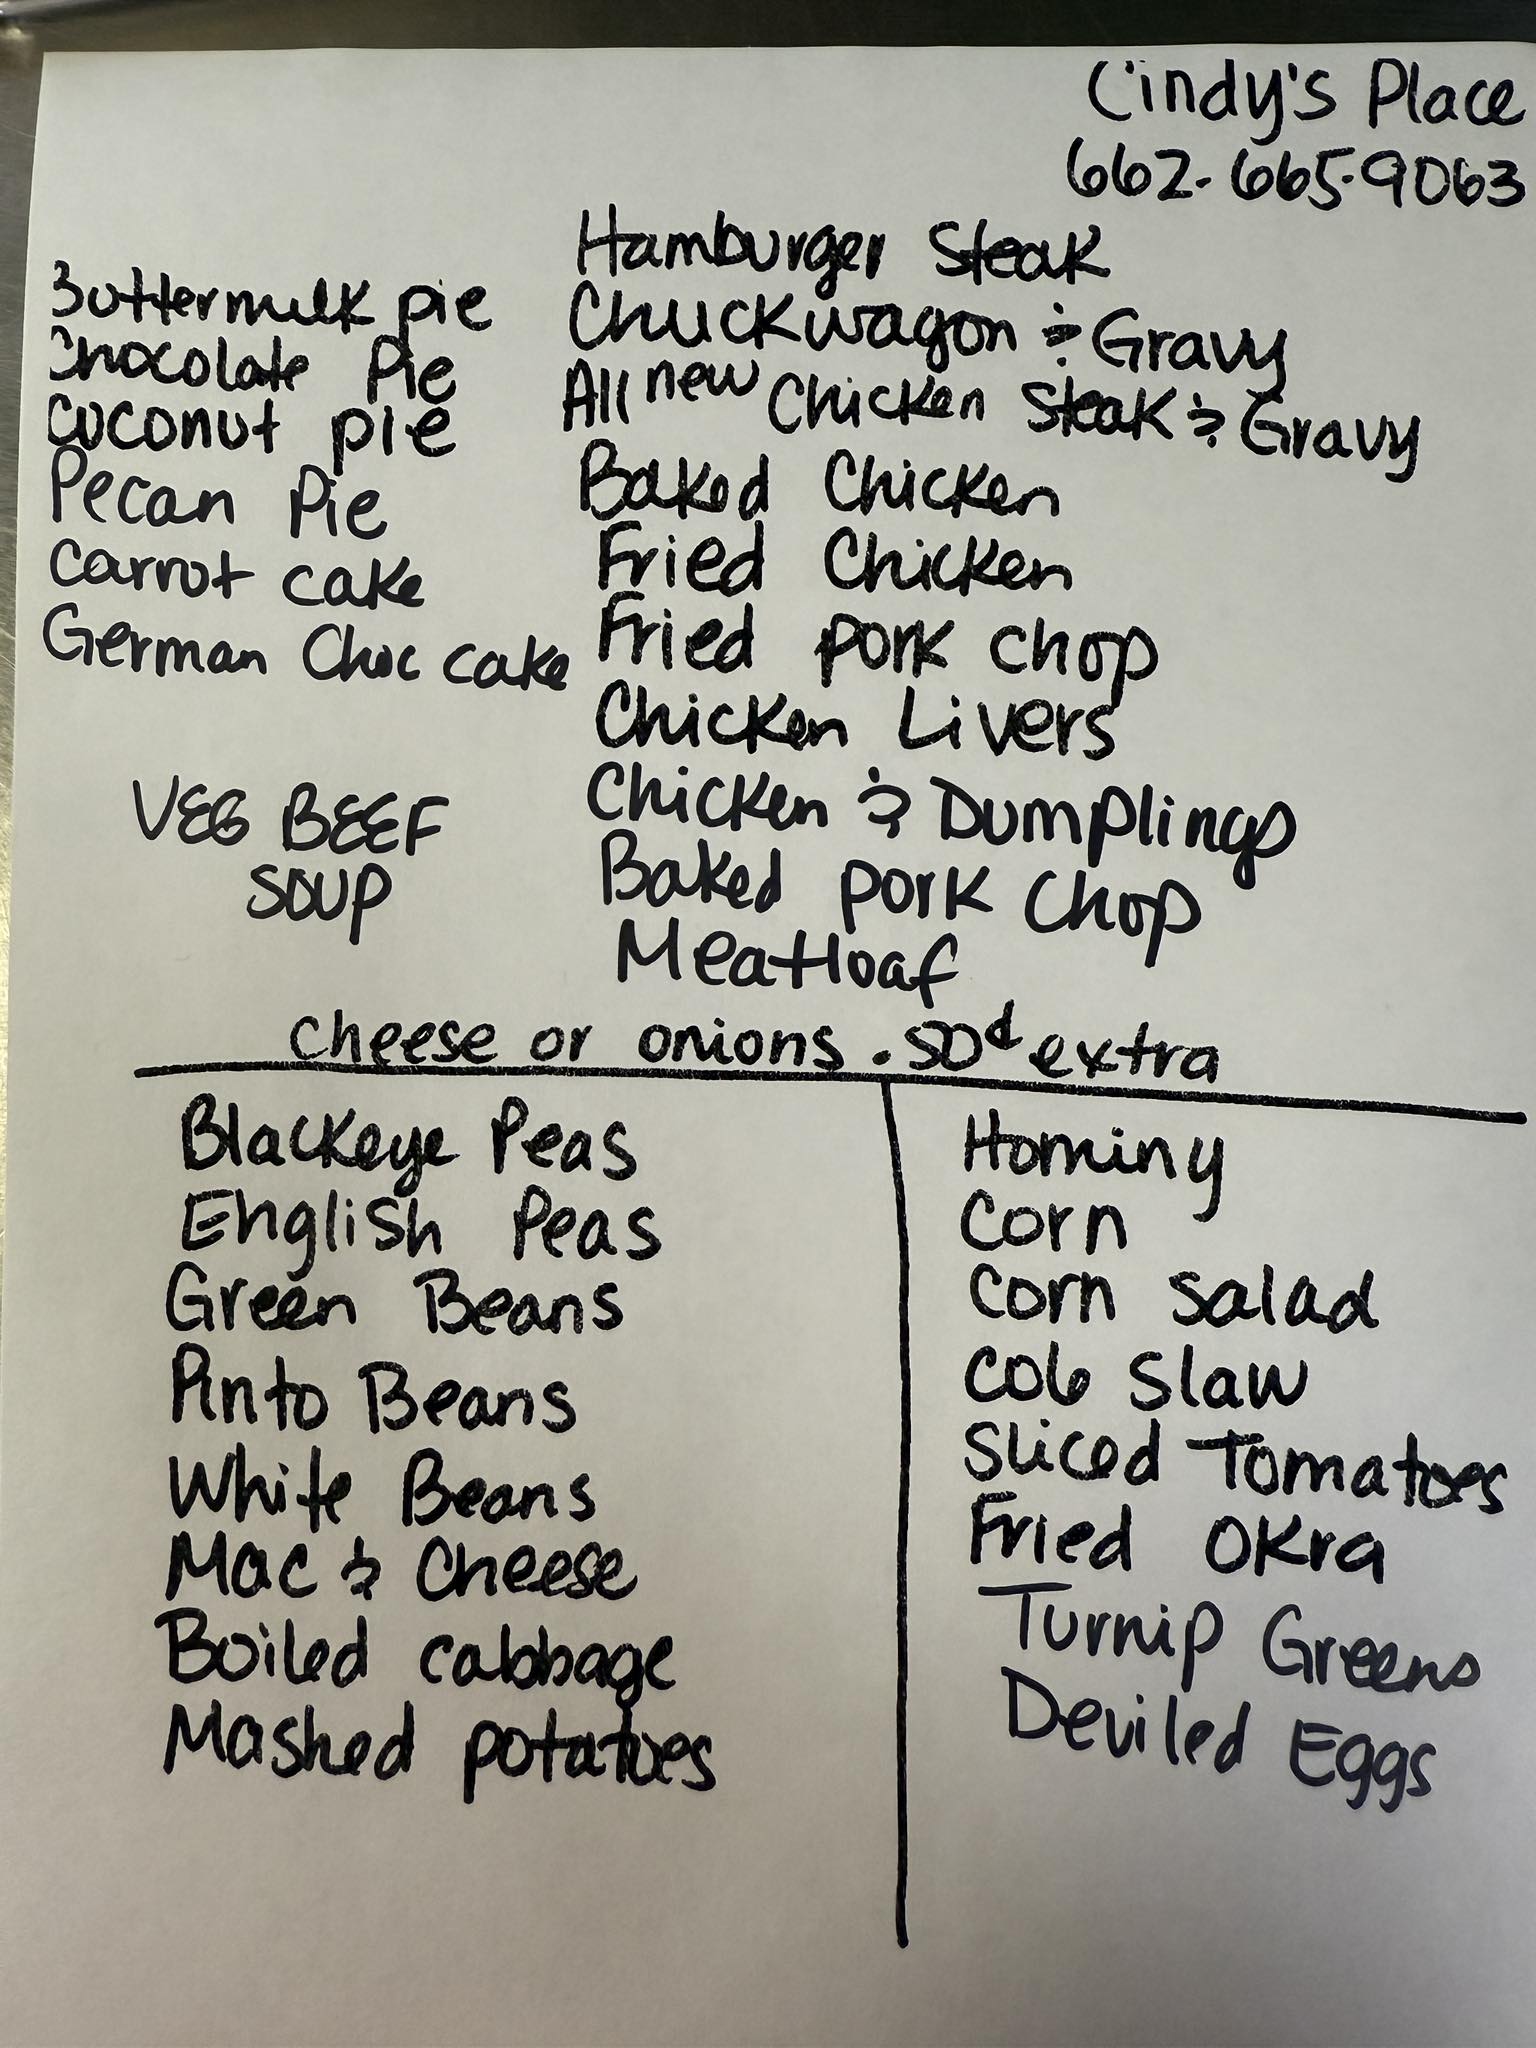 Cindy's Place
662-665-9063
Buttermilk pie
Chocolate Pie
Coconut pie
Pecan Pie
Carrot cake
German Choc cake
VEG BEEF
SOUP
Hamburger Steak
Chuckwagon & Gravy
All new Chicken Steak & Gravy
Baked Chicken
Fried Chicken
Fried pork chop
Chicken Livers
Chicken & Dumplings
Baked pork Chop
Meatloaf
cheese or onions .50¢ extra
Blackeye Peas
English Peas
Green Beans
Pinto Beans
White Beans
Mac & Cheese
Boiled cabbage
Mashed potatoes
Hominy
Corn
Corn Salad
Cole Slaw
Sliced Tomatoes
Fried OKra
Turnip Greens
Deviled Eggs